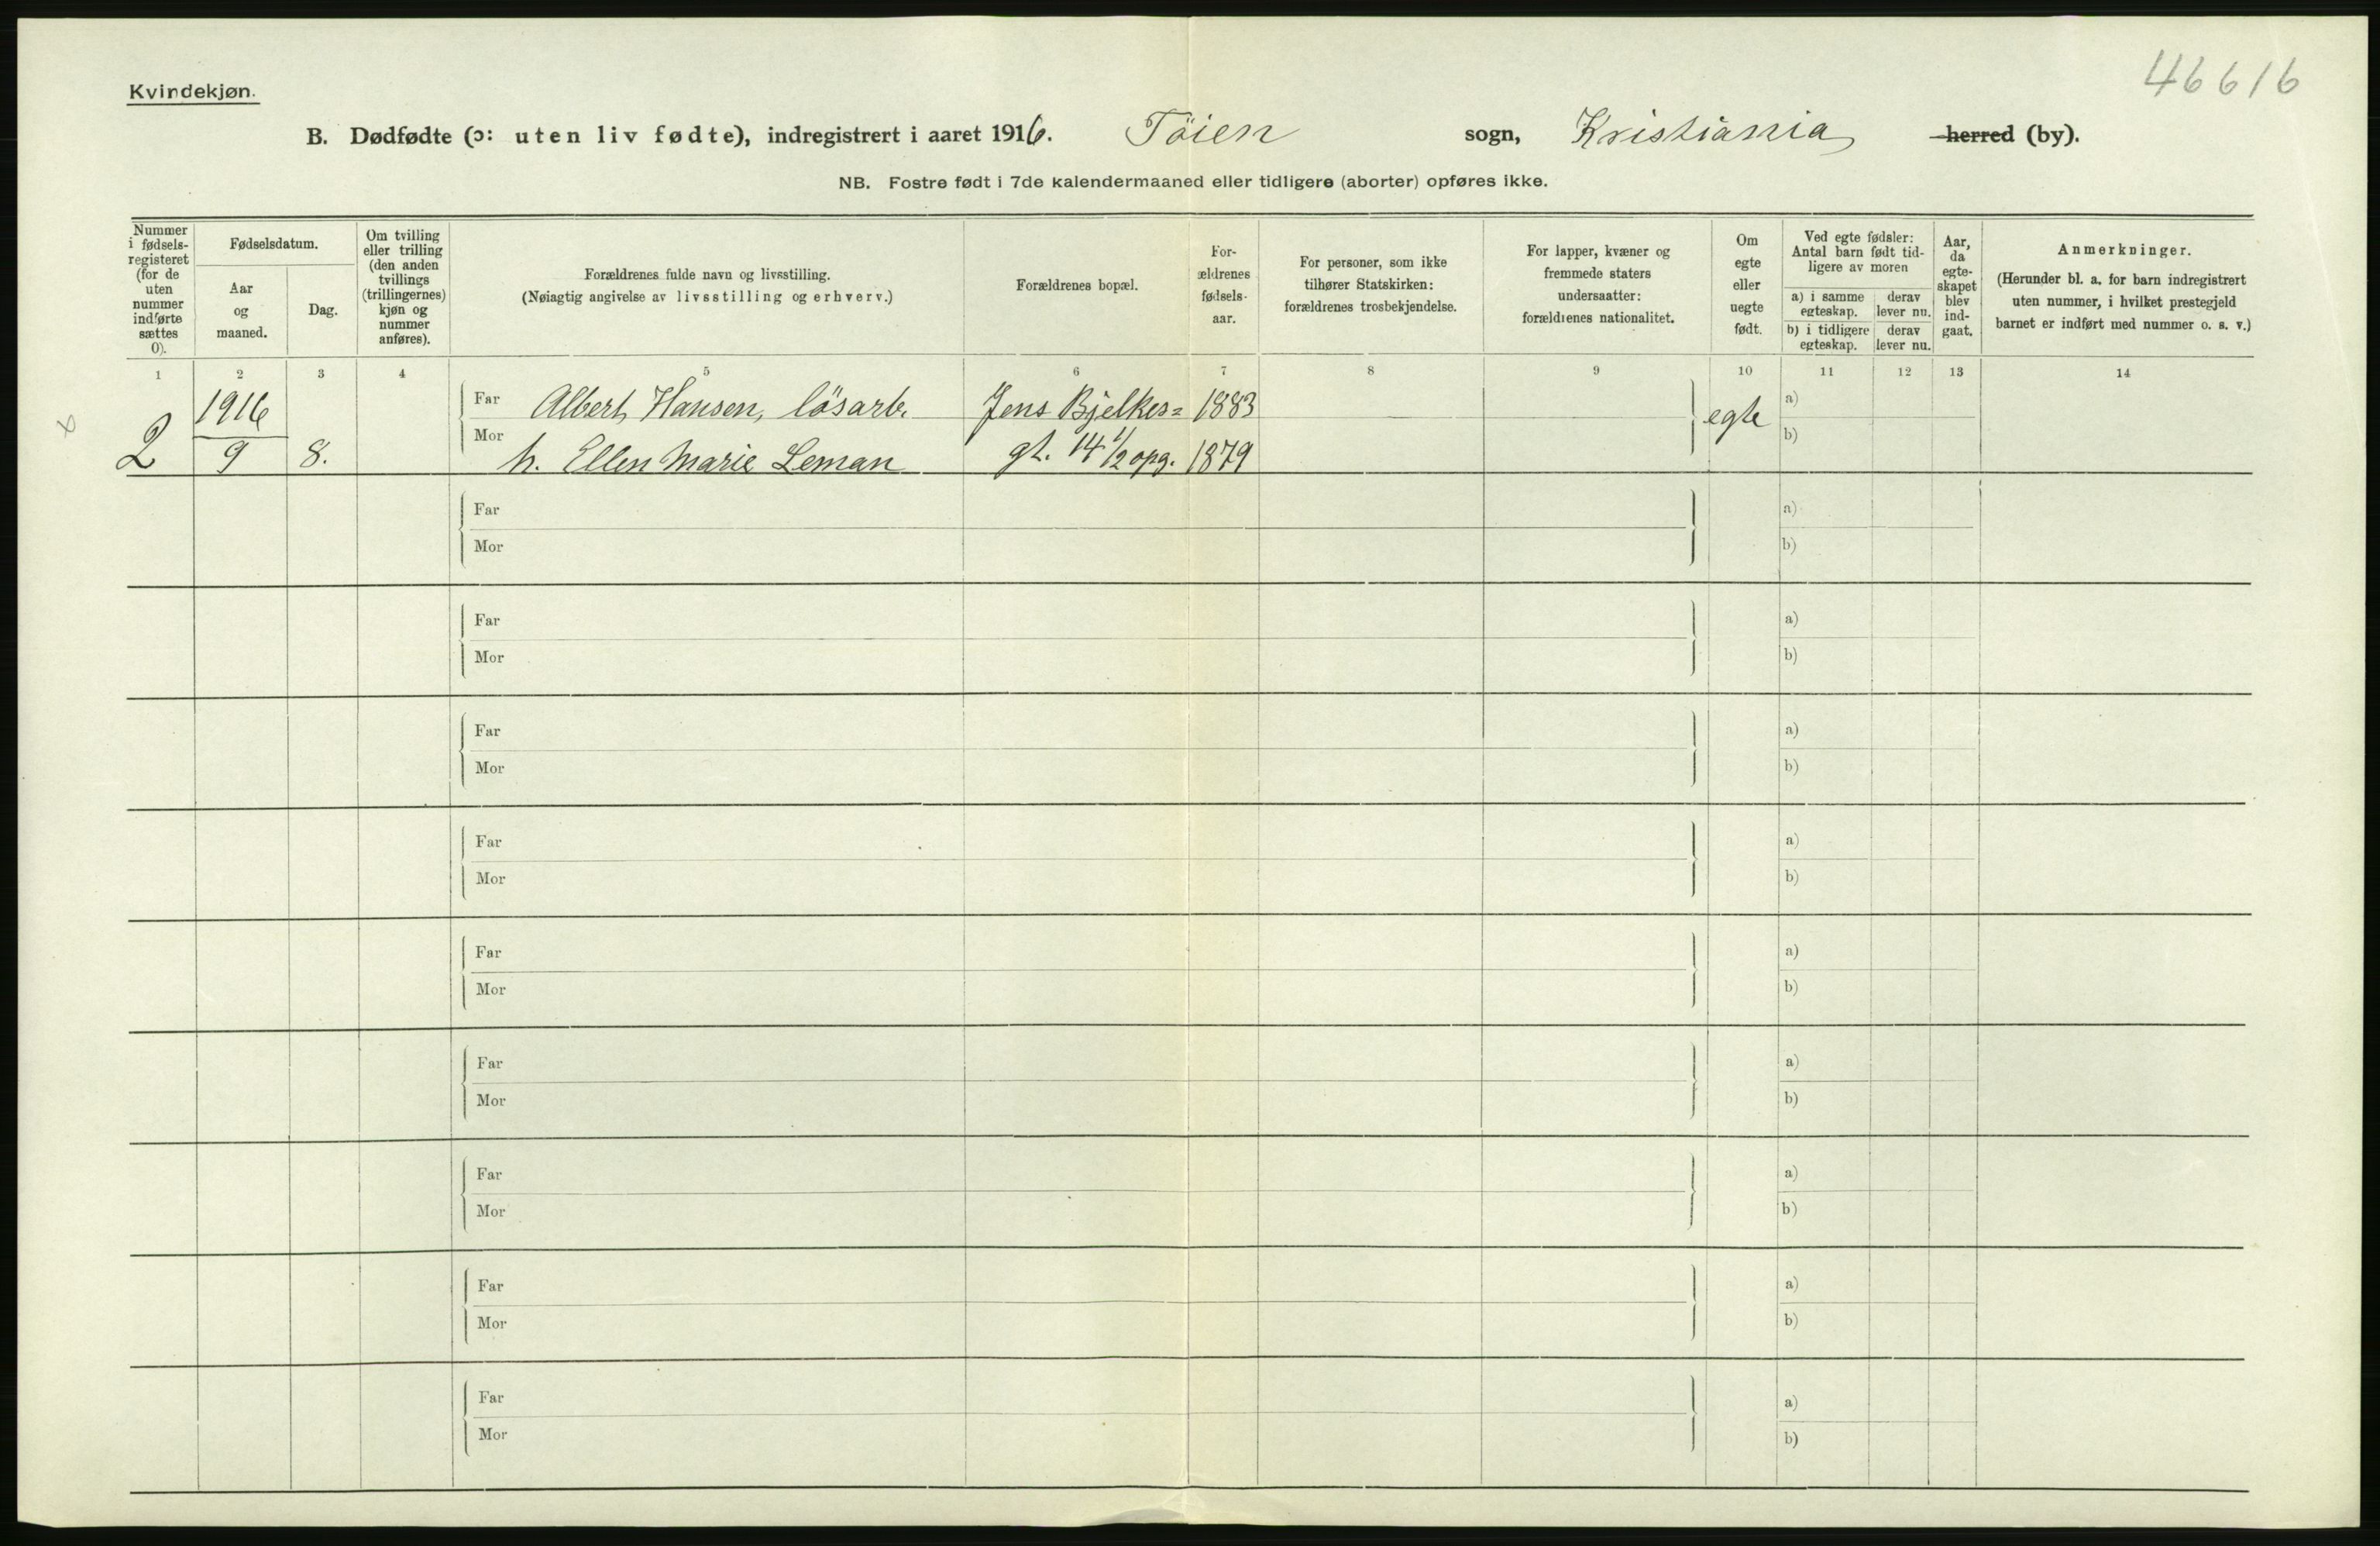 46616
Kvindekjøn.
B. Dødfødte (ɔ: uten liv fødte), indregistrert i aaret 1916. Töien sogn, Kristiania herred (by).
NB. Fostre født i 7de kalendermaaned eller tidligere (aborter) opføres ikke.
Nummer i fødsels-registeret (for de uten nummer indførte sættes 0).
Fødselsdatum.
Aar og maaned.
Dag.
Om tvilling eller trilling (den anden tvillings (trillingernes) kjøn og nummer anføres).
Forældrenes fulde navn og livsstilling.
(Nøiagtig angivelse av livsstilling og erhverv.)
Forældrenes bopæl.
For-ældrenes fødsels-aar.
For personer, som ikke tilhører Statskirken: forældrenes trosbekjendelse.
For lapper, kvæner og fremmede staters undersaatter: forældrenes nationalitet.
Om egte eller uegte født.
Ved egte fødsler: Antal barn født tid-ligere av moren
a) i samme egteskap. derav lever nu.
b) i tidligere egteskap. derav lever nu.
Aar, da egte-skapet blev ind-gaat.
Anmerkninger.
(Herunder bl. a. for barn indregistrert uten nummer, i hvilket prestegjeld barnet er indført med nummer o. s. v.)
1 2 3 4 5 6 7 8 9 10 11 12 13 14
x 2 1916 9 8. Far Albert Hansen, lösarb. Jens Bjelkes= 1883 egte a)
Mor h. Ellen Marie Leman gt. 14 1/2 opg. 1879 b)
Far a)
Mor b)
Far a)
Mor b)
Far a)
Mor b)
Far a)
Mor b)
Far a)
Mor b)
Far a)
Mor b)
Far a)
Mor b)
Far a)
Mor b)
Far a)
Mor b)